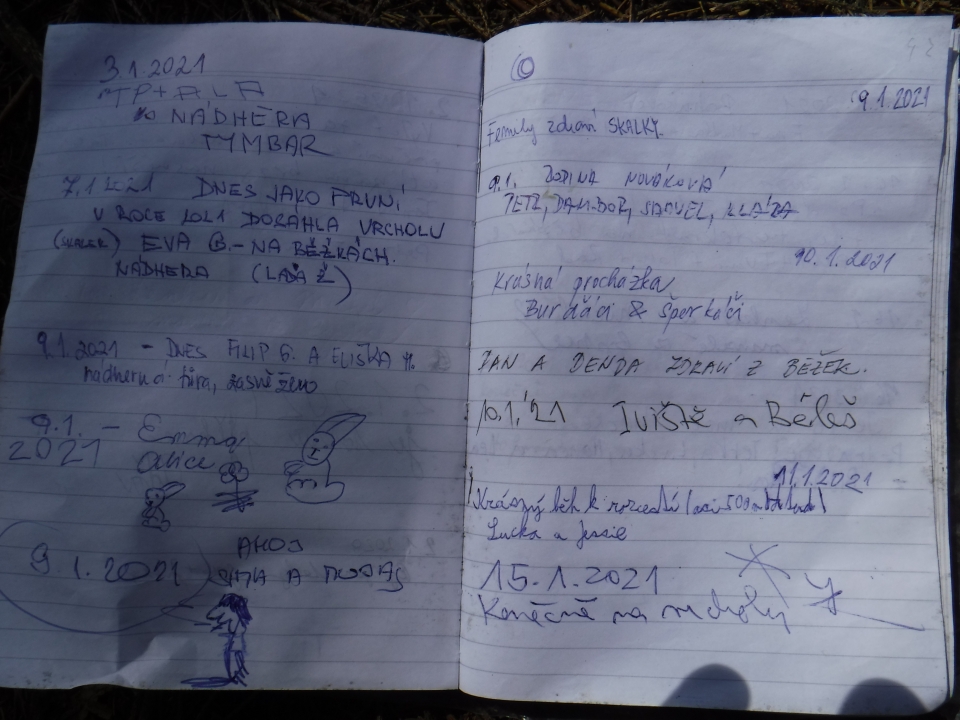 3.1.2021
TP+ALA
NÁDHERA
TYMBAR
7.1.2021 DNES JAKO PRVNÍ
V ROCE 2021 DOSÁHLA VRCHOLU
(SKALEK) EVA B. - NA BĚŽKÁCH.
NÁDHERA (LAĎA Ž)
9.1.2021 - DNES FILIP G. A ELIŠKA
nádherná túra, zasněženo
9.1. - Emma
2021 Alice
AHOJ
9 1.2021
9.1.2021
Family zdraví SKALKY.
9.1. NOVÁKOVÁ
PETR, DALIBOR, SAMUEL, KLÁRA
10.1.2021
Krásná procházka
Burďáci & Šporkáči
DAN A DENDA ZDRAVÍ Z BĚŽEK.
10.1.'21 Iviště a Béleš
11.1.2021 -
Krásný běh k rozcestí
Lucka a Jessie
15.1.2021
Konečně na vrcholu